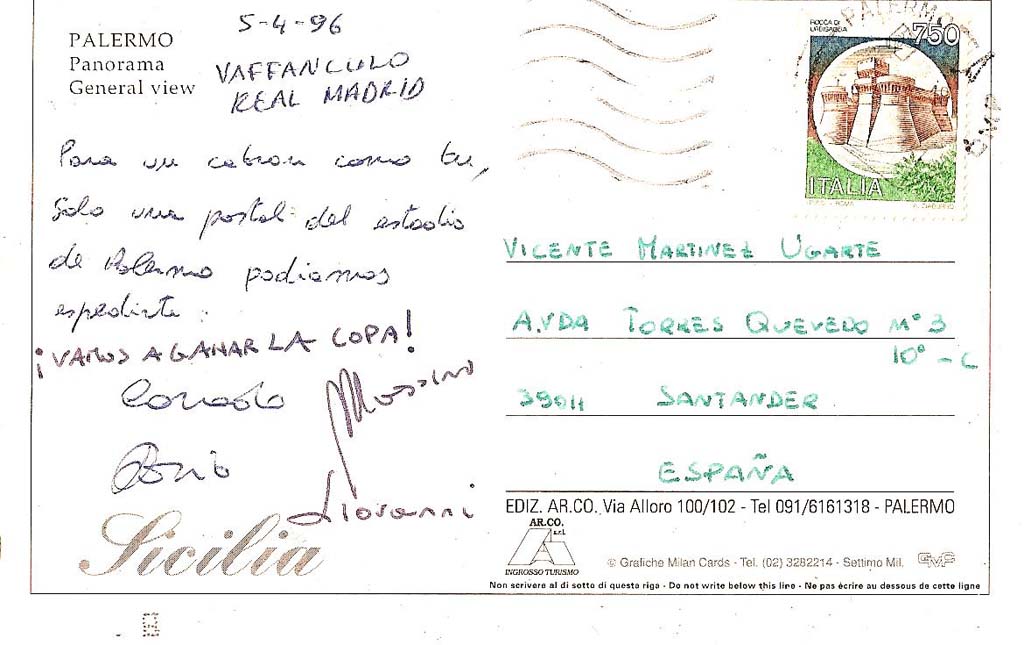 5-4-96
PALERMO
Panorama
General view
VAFFANCULO
REAL MADRID
Para un cabron como tu,
solo una postal del estadio
de Palermo podiamos
espedirte.
¡VAMOS A GANAR LA COPA!
Corrado
Massimo
Dario
Giovanni
Sicilia
PALERMO
ROCCA DI
URBISAGLIA
750
ITALIA
VICENTE MARTINEZ UGARTE
AVDA TORRES QUEVEDO Nº 3
10º - C
39011 SANTANDER
ESPAÑA
EDIZ. AR.CO. Via Alloro 100/102 - Tel 091/6161318 - PALERMO
AR.CO.
s.r.l.
INGROSSO TURISMO
© Grafiche Milan Cards - Tel. (02) 3282214 - Settimo Mil. GMC
Non scrivere al di sotto di questa riga - Do not write below this line - Ne pas écrire au dessous de cette ligne